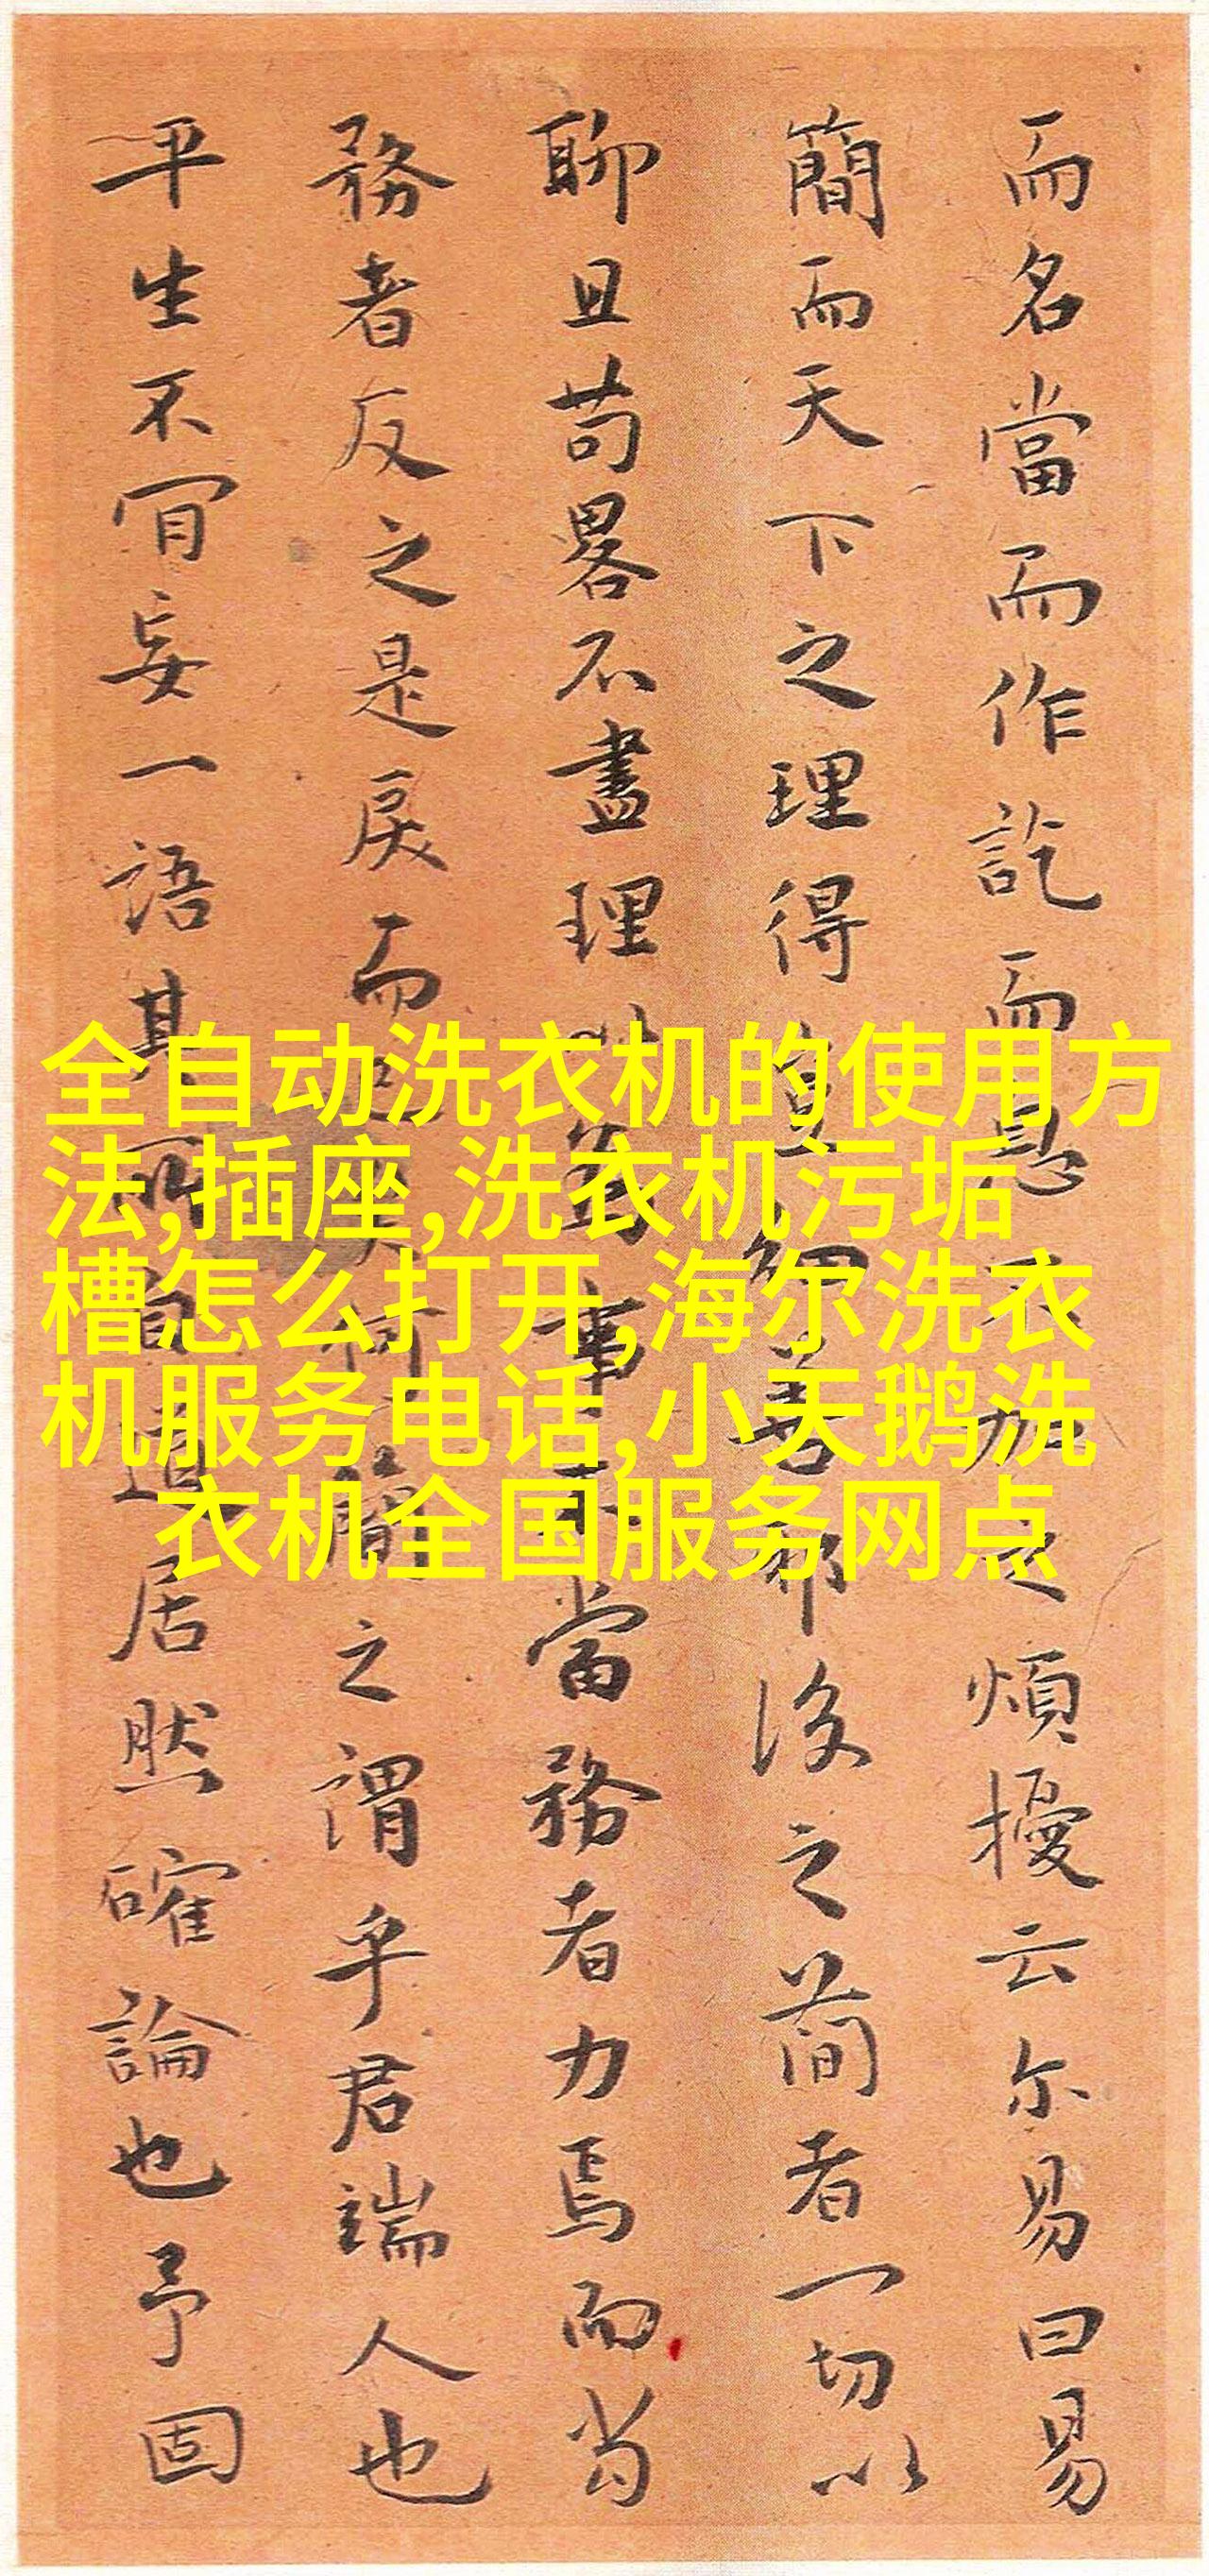 而名當而作訖而
煩擾云尔易曰易
簡而天下之理得
後之簡者一切以
聊且苟畧不盡理
當務者力焉而苟
務者反之是戾而
簡之謂乎君端人也
平生不肎妄一語其
居然確論也予固
全自动洗衣机的使用方
法,插座,洗衣机污垢
槽怎么打开,海尔洗衣
机服务电话,小天鹅洗
衣机全国服务网点